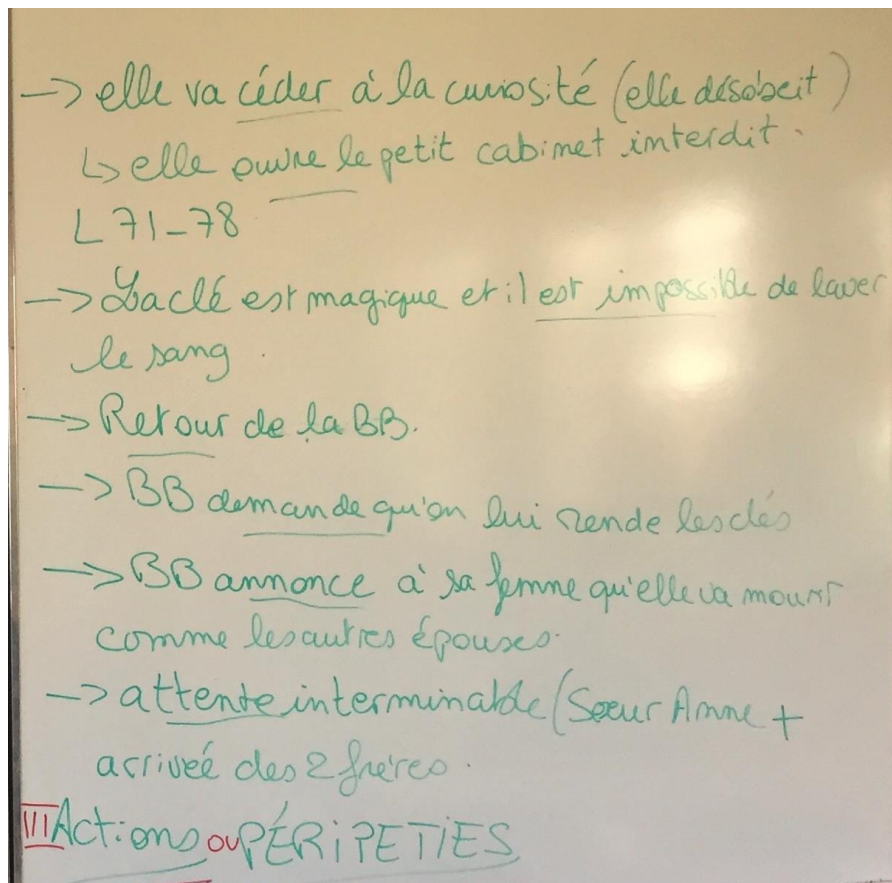 → elle va céder à la curiosité (elle désobeit)
↳ elle ouvre le petit cabinet interdit.
L 71-78
→ La clé est magique et il est impossible de laver
le sang.
→ Retour de la BB.
→ BB demande qu'on lui rende les clés
→ BB annonce à sa femme qu'elle va mourir
comme les autres épouses.
→ attente interminable (Soeur Anne +
arriveé des 2 frères.
III Actions ou PÉRIPETIES